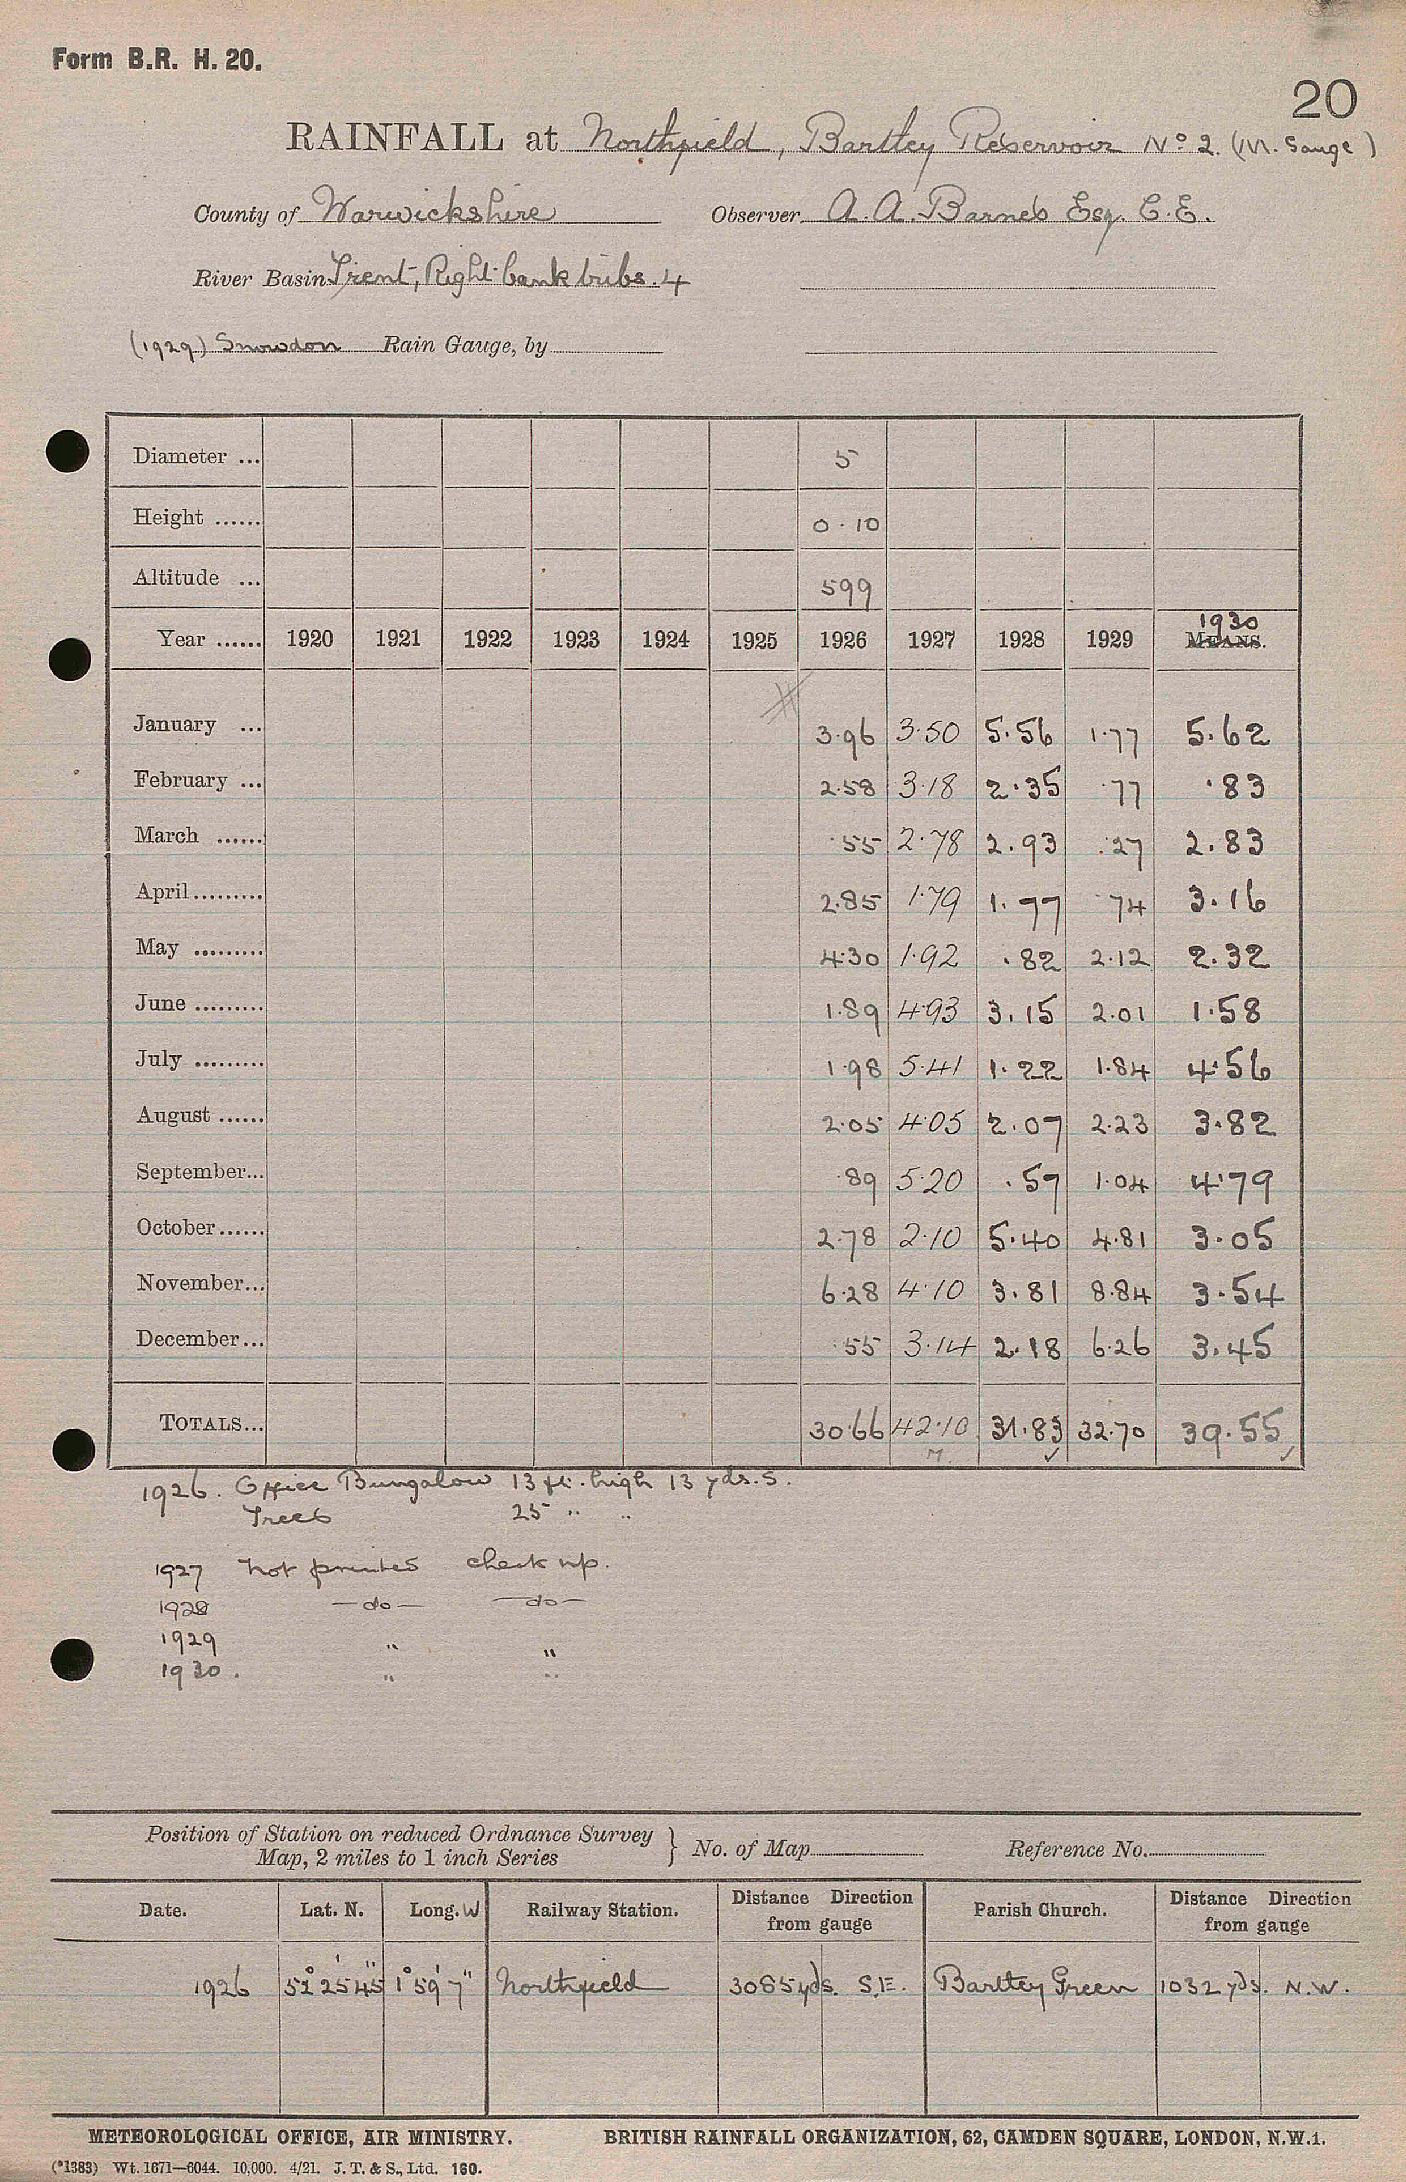 Form B.R. H. 20.
20
RAINFALL at Northfield, Bartley Reservoir No 2. (M. Gauge)
County of Warwickshire Observer A. A. Barnes Esq. C.E.
River Basin Trent, Right bank tribs. 4
(1929) Snowdon Rain Gauge, by
Diameter ... 5
Height ...... 0.10
Altitude ... 599
Year ...... 1920 1921 1922 1923 1924 1925 1926 1927 1928 1929 1930 MEANS.
January ... 3.96 3.50 5.56 1.77 5.62
February ... 2.58 3.18 2.35 .77 .83
March ...... .55 2.78 2.93 .27 2.83
April ......... 2.85 1.79 1.77 .74 3.16
May ......... 4.30 1.92 .82 2.12 2.32
June ......... 1.89 4.93 3.15 2.01 1.58
July ......... 1.98 5.41 1.22 1.84 4.56
August ...... 2.05 4.05 2.07 2.23 3.82
September... .89 5.20 .57 1.04 4.79
October...... 2.78 2.10 5.40 4.81 3.05
November... 6.28 4.10 3.81 8.84 3.54
December... .55 3.14 2.18 6.26 3.45
TOTALS... 30.66 42.10 31.83 32.70 39.55
1926. Office Bungalow 13 ft. high 13 yds. S.
Trees 25 " "
1927 not printed check up.
1928 —do— —do—
1929 " "
1930. " "
Position of Station on reduced Ordnance Survey
Map, 2 miles to 1 inch Series } No. of Map Reference No.
Date. Lat. N. Long. W Railway Station. Distance Direction from gauge Parish Church. Distance Direction from gauge
1926 52° 25' 45" 1° 59' 7" Northfield 3085 yds. S.E. Bartley Green 1032 yds. N.W.
METEOROLOGICAL OFFICE, AIR MINISTRY. BRITISH RAINFALL ORGANIZATION, 62, CAMDEN SQUARE, LONDON, N.W.1.
(*1383) Wt. 1671—6044. 10,000. 4/21. J. T. & S., Ltd. 160.